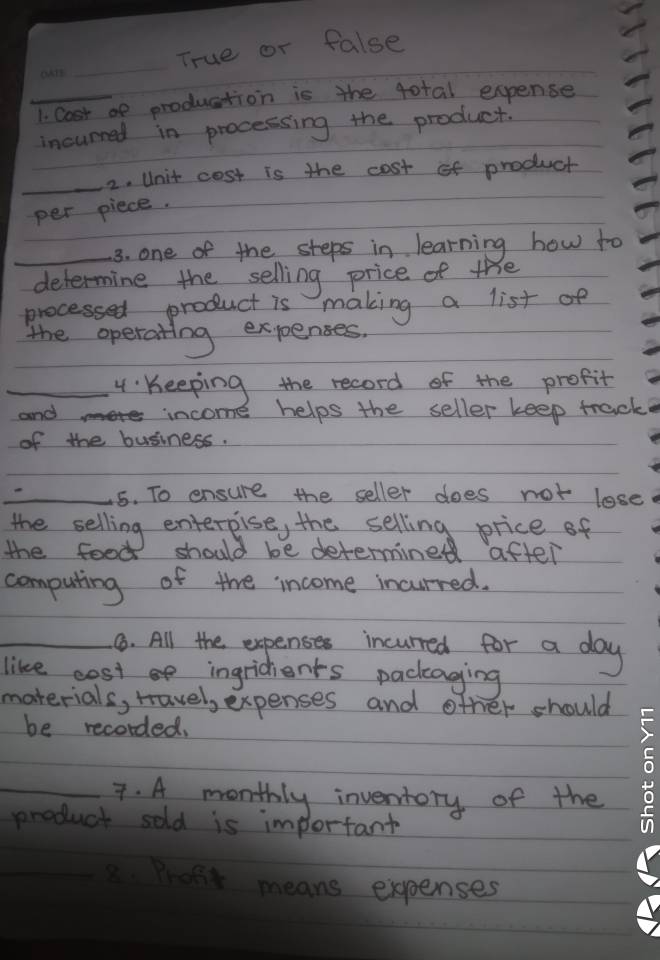 True or false
DATE
1. Cost of production is the total expense
incurred in processing the product.
2. Unit cost is the cost of product
per piece.
3. one of the steps in learning how to
determine the selling price of the
processed product is making a list of
the operating expenses.
4. Keeping the record of the profit
and more income helps the seller keep track
of the business.
5. To ensure the seller does not lose
the selling enterpise, the selling price of
the food should be determined after
computing of the income incurred.
6. All the expenses incurred for a day
like cost of ingridients packaging
materials, travel, expenses and other should
be recorded.
7. A monthly inventory of the
product sold is important
8. Profit means expenses
Shot on Y11